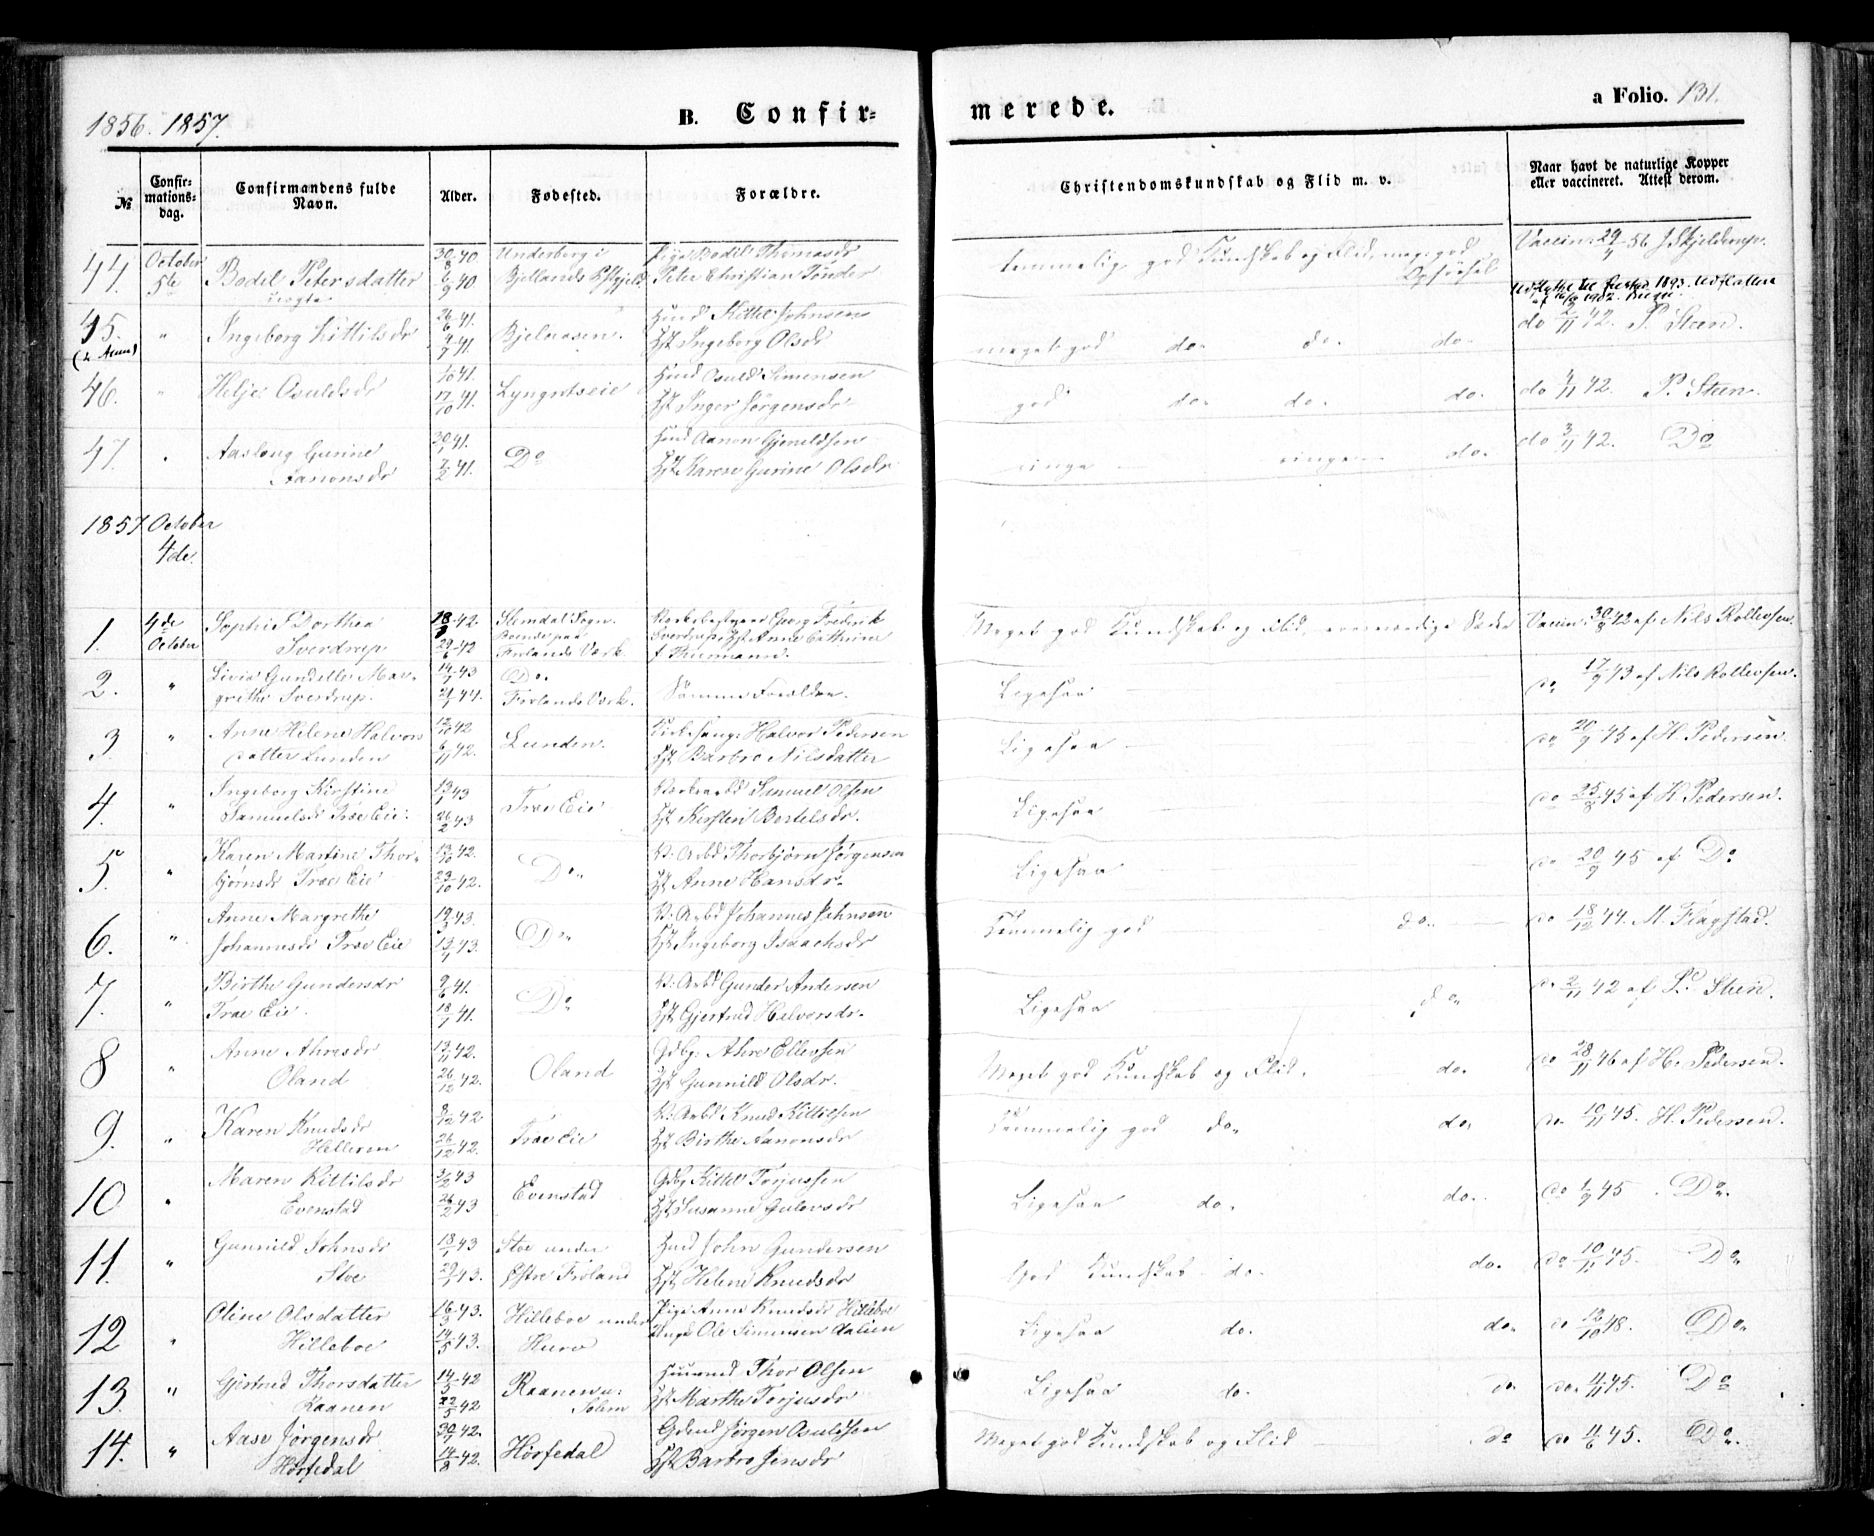 1856. 1857.
B. Confir-
merede.
a Folio. 131.
№
Confir-
mations-
dag.
Confirmandens fulde
Navn.
Alder.
Fødested.
Forældre.
Christendomskundskab og Flid m. v.
Naar havt de naturlige Kopper
eller vaccineret. Attest derom.
44. October 5te Bodil Petersdatter
Pige Bodil Thomasdr
Peter Christian Tønder
temmelig god Kundskab og Flid, meget god
Opførsel
45. " Ingeborg Kittilsdr 26/6 41. Bjelnæsen. Huusmd Kittel Johnsen
Hst Ingeborg Olsdr
meget god do. do. do.
do 2/11 42. P. Steen.
46. " Helje Osuldsdr 17/10 41. Osuld Simensen
Hst Inger Jørgensdr
god do. do. do.
do 4/11 42. P. Steen.
47. Aaslaug Gurine
Aanonsdr
30/1 41. 7/2 41. Do Aanon Gjeruldsen
Hst Karen Gurine Olsdr
ringe ringe do.
do 3/11 42. Do
1857 October
4de.
1. 4de October Sophie Dorthea
Sverdrup
29/6 42 Georg Frederik
Sverdrup, Hst Anne Cathrine
f. Thiermand.
Meget god Kundskab og Flid,
Vaccin: 30/9 42 af Nils Rollevsen.
2. " Livia Gundelle Mar-
grethe Sverdrup.
Do.
Frolands Værk.
Samme Forældre.
Ligesaa
do 17/9 43 af Nils Rollevsen.
3 " Anne Helene Halvors
datter Lunden
12/10 42 6/11 42. Lunden. Kirkesang: Halvor Pedersen
Hst Barbro Nilsdatter
Ligesaa
do 20/9 45 af H. Pedersen.
4. " Ingeborg Kirstine
Samuelsdr Træ Eie.
13/1 43 26/2 43 Træ Eie Samuel Olsen
Hst Kirsten Bertelsdr.
Ligesaa
do 25/8 45 af H. Pedersen.
5. " Karen Martine Thor-
bjørnsdr Træ Eie
13/10 42. 23/10 42. Do. V. Arbd Thorbjørn Jørgensen
Hst Anne Hansdr.
Ligesaa
do 20/9 45 af Do
6. " Anne Margrethe
Johannesdr Træ Eie
Do. V. Arbd Johannes Johnsen
Hst Ingeborg Isaachsdr
Temmelig god do.
do 18/12 44. M. Flagstad.
7. " Birthe Gundersdr
Træ Eie.
9/6 41. 18/7 41. Do V. Arbd Gunder Andersen
Hst Gjertrud Halvorsdr.
Ligesaa do
do 2/11 42 af P. Steen.
8 " Anne Ahresdr
Oland
13/11 42. 26/12 42. Oland Gdbr: Ahre Ellevsen
Hst Gunnild Olsdr.
Meget god Kundskab og Flid. do.
do 28/11 46 af H. Pedersen.
9. " Karen Knudsdr
Helleren
8/12 42 26/12 42. Træ Eie V. Arbd Knud Kittelsen
Hst Birthe Aanonsdr
Temmelig god do. do.
do. 10/11 45. H. Pedersen.
10 " Maren Kittilsdr
Evenstad
3/2 43 26/2 43 Evenstad Gdbr Kittel Torjussen
Hst Susanne Gulovsdr
Ligesaa do. do.
do 1/9 45. Do.
11. " Gunnild Johnsdr
Stoe
18/1 43 29/1 43. Stoe under
Østre Froland
Huusmd John Gundersen
Hst Helene Knudsdr
God Kundskab do. do.
do 10/11 45. Do.
12 " Oline Olsdatter
Hilleboe
16/3 43. 14/5 43. Hilleboe under
Hurv
Pige Anne Knudsdr Hilleboe
Ungk Ole Simonsen Dalen
Ligesaa do. do.
do 12/10 48. Do.
13. " Gjertrud Thorsdatter
Raanen
14/5 42 22/5 42 Raanen u.
Solem
Huusmd Thor Olsen
Hst Marthe Torjusdr
Ligesaa do. do
do. 4/11 45. Do
14. " Aase Jørgensdr.
Hørfedal
30/7 42. 14/8 42. Hørfedal Gdmd Jørgen Osuldsen
Hst Barbro Jensdr
Meget god Kundskab og Flid do
do 11/6 45. Do.